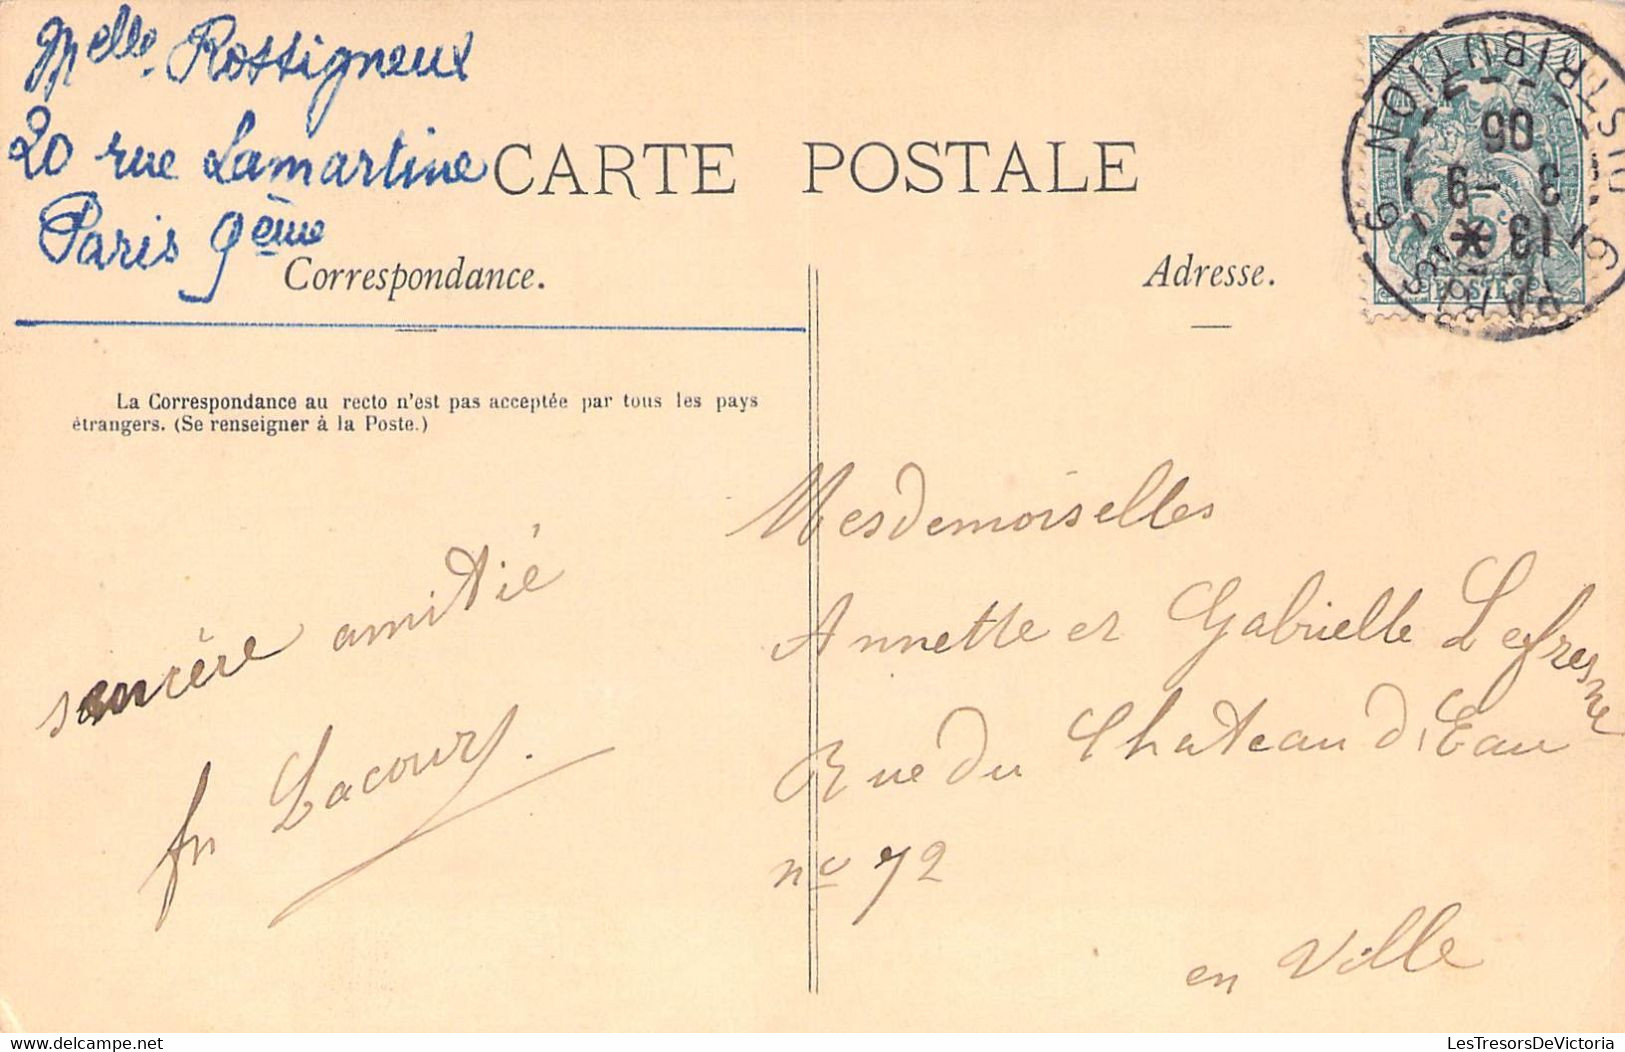 Melle. Rossigneux
20 rue Lamartine
Paris 9ème
CARTE POSTALE
Correspondance.
Adresse.
La Correspondance au recto n'est pas acceptée par tous les pays
étrangers. (Se renseigner à la Poste.)
sincère amitié
fn Lacour
Mesdemoiselles
Annette et Gabrielle Lefresne
Rue du Chateau d'Eau
no 72
en Ville
PARIS 19 DISTRIBUTION
13
3 -9
06
POSTES
Delcampe.net
LesTresorsDeVictoria